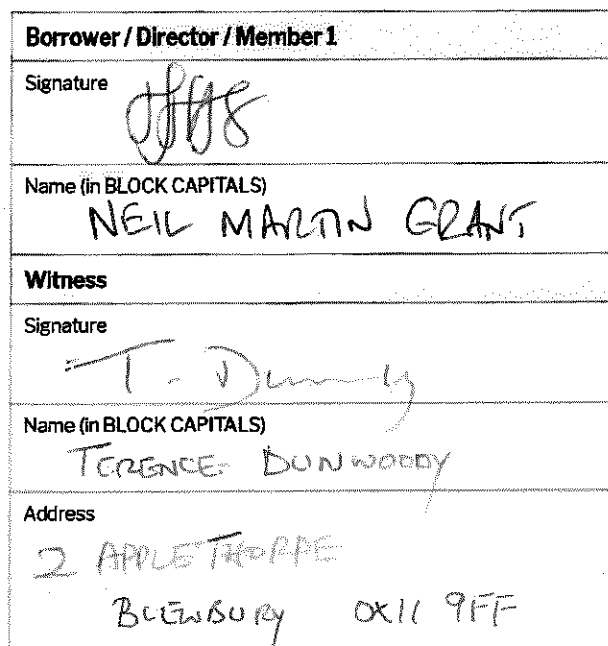 Borrower / Director / Member 1
Signature
Name (in BLOCK CAPITALS)
NEIL MARTIN GRANT
Witness
Signature
T. Dunwoody
Name (in BLOCK CAPITALS)
TERENCE DUNWOODY
Address
2 APPLETHORPE
BLEWBURY OX11 9FF